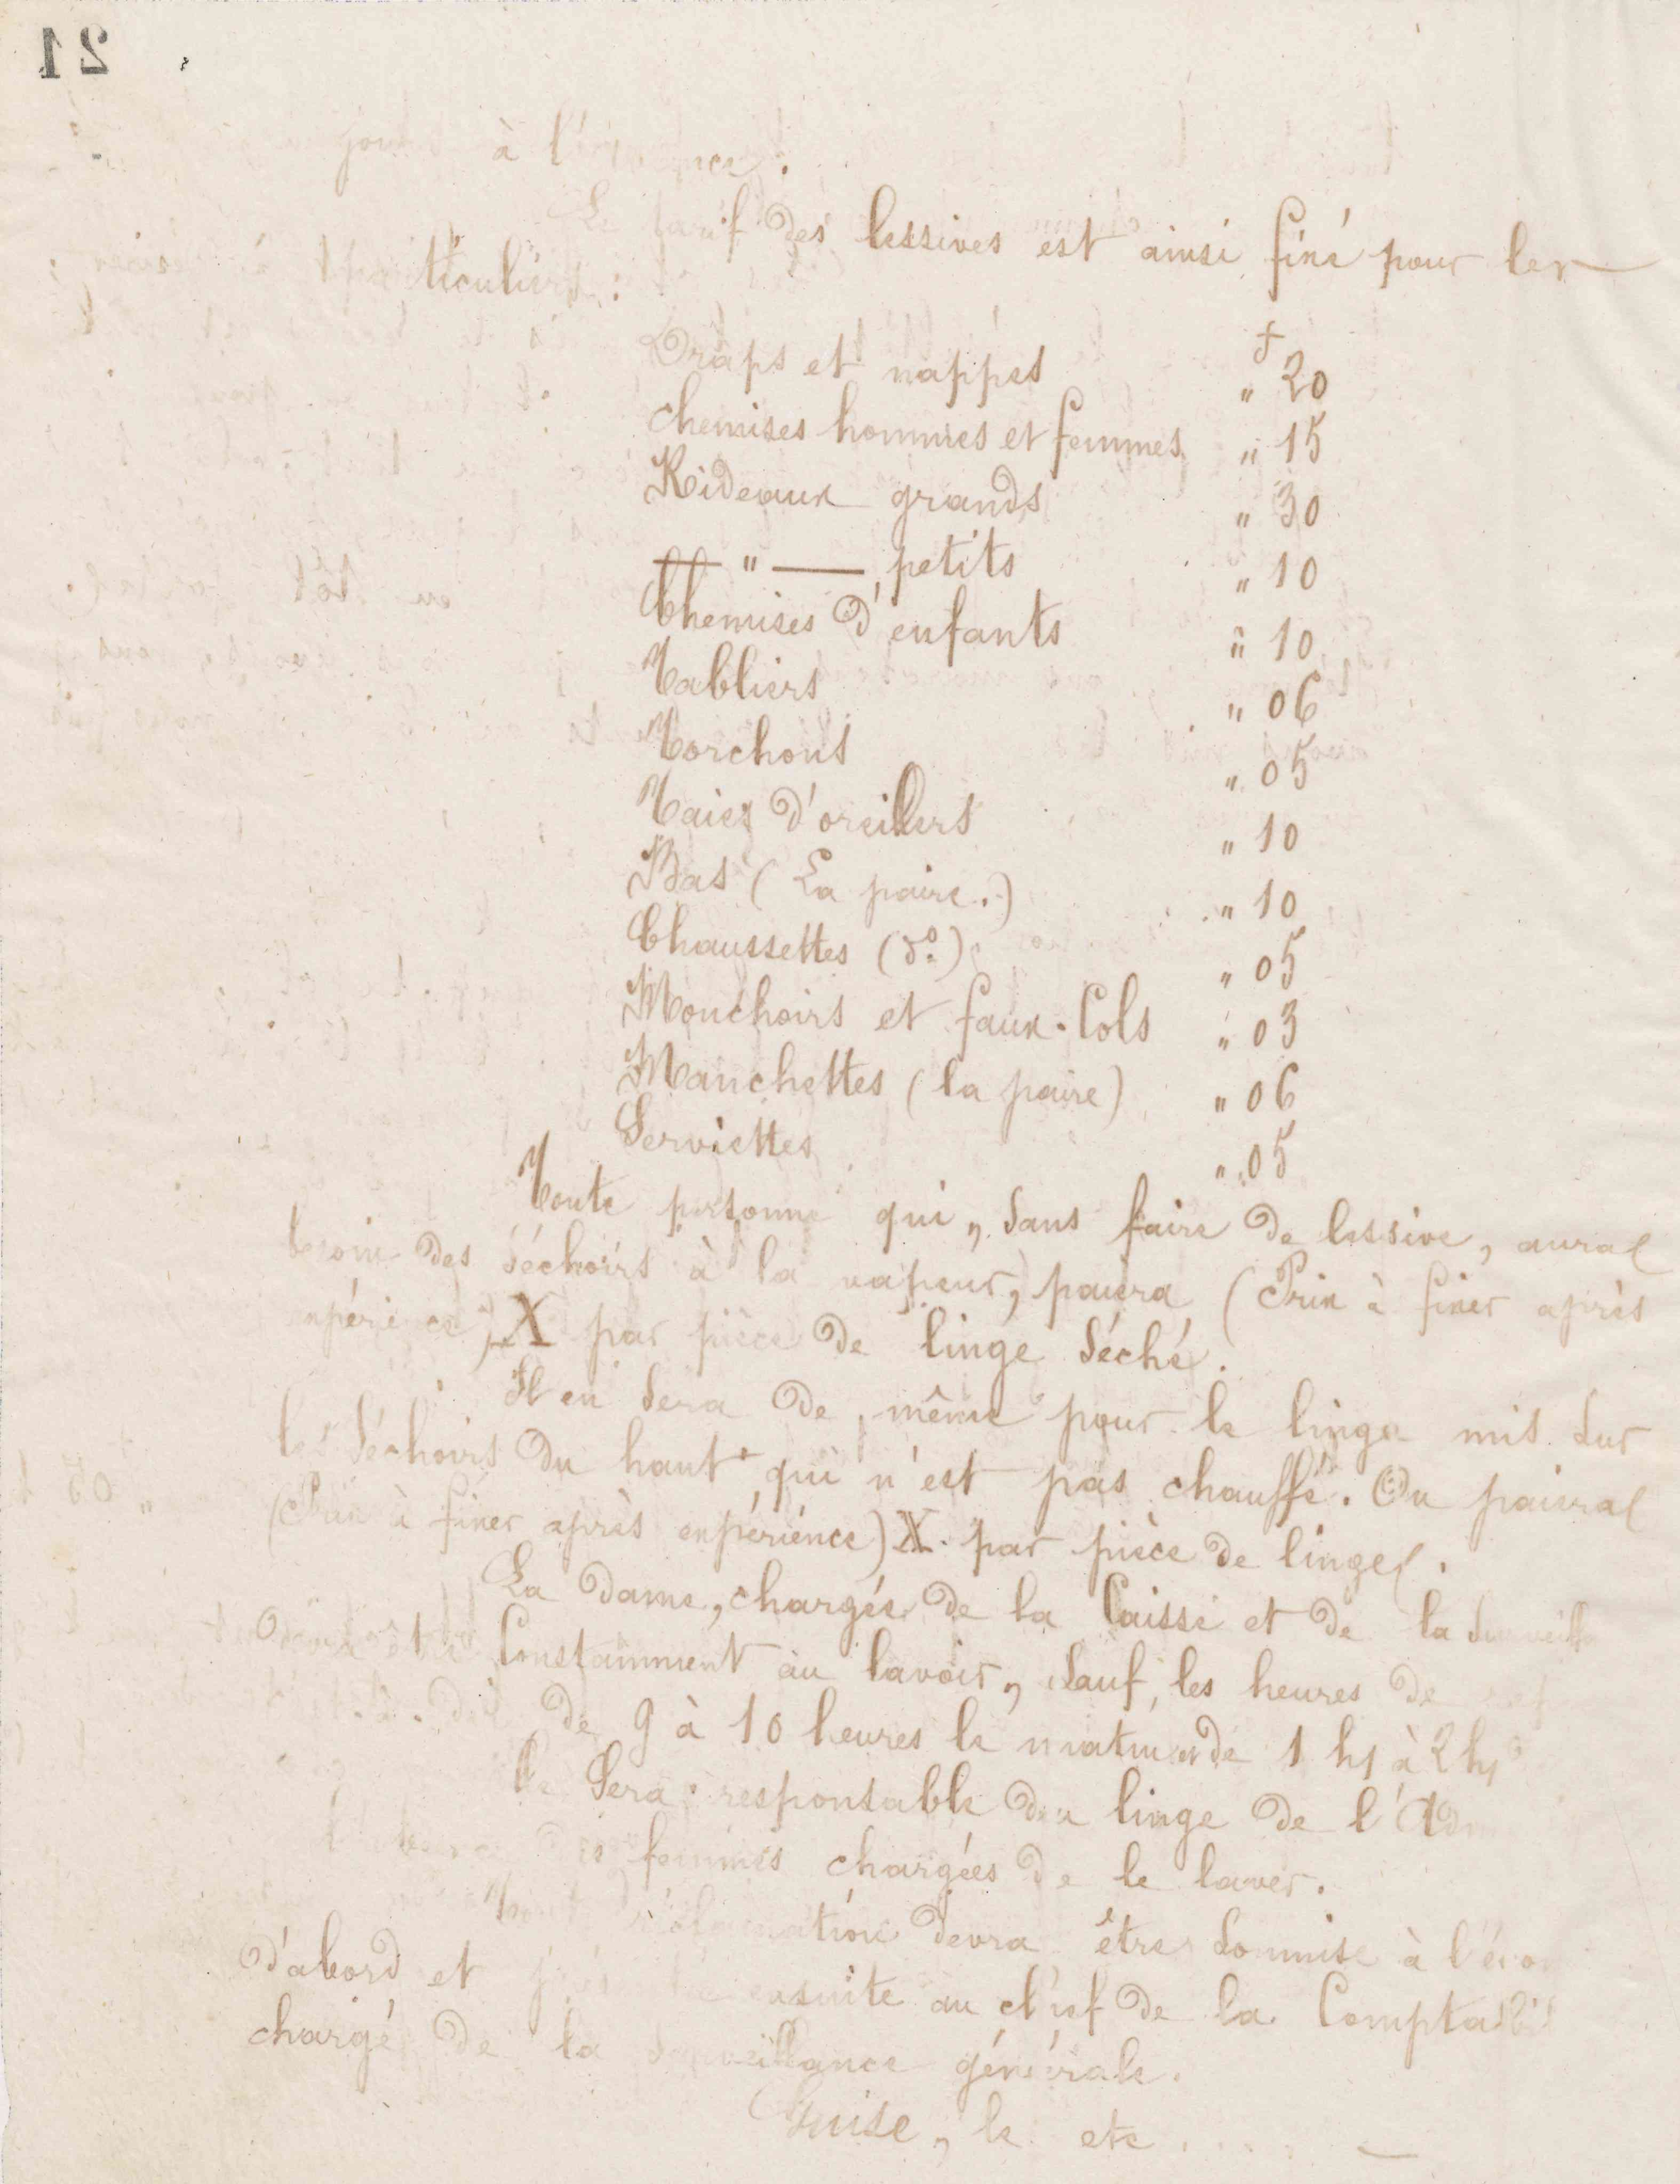 21
à l'
Le tarif des lessives est ainsi fixé pour les
particuliers :
f
Draps et nappes " 20
chemises hommes et femmes " 15
Rideaux grands " 30
— " — petits " 10
Chemises d'enfants " 10
Tabliers " 06
Torchons " 05
Taies d'oreillers " 10
Bas (La paire.) " 10
Chaussettes (do) " 05
Mouchoirs et faux-Cols " 03
Manchettes (la paire) " 06
Serviettes " 05
Toute personne qui, sans faire de lessive, aura
besoin des séchoirs à la vapeur, paiera (Prix à fixer après
expérience) X par pièce de linge séché.
Il en sera de même pour le linge mis sur
les séchoirs du haut qui n'est pas chauffé. On paiera
(Prix à fixer après expérience) X par pièce de linge.
La dame, chargée de la Caisse et de la
devra être Constamment au lavoir, sauf, les heures de
de 9 à 10 heures le matin et de 1 h à 2 h
Sera responsable du linge de l'
femmes chargées de le laver.
devra être soumise à
d'abord et ensuite au chef de la
chargé de la surveillance générale.
Guise, le etc